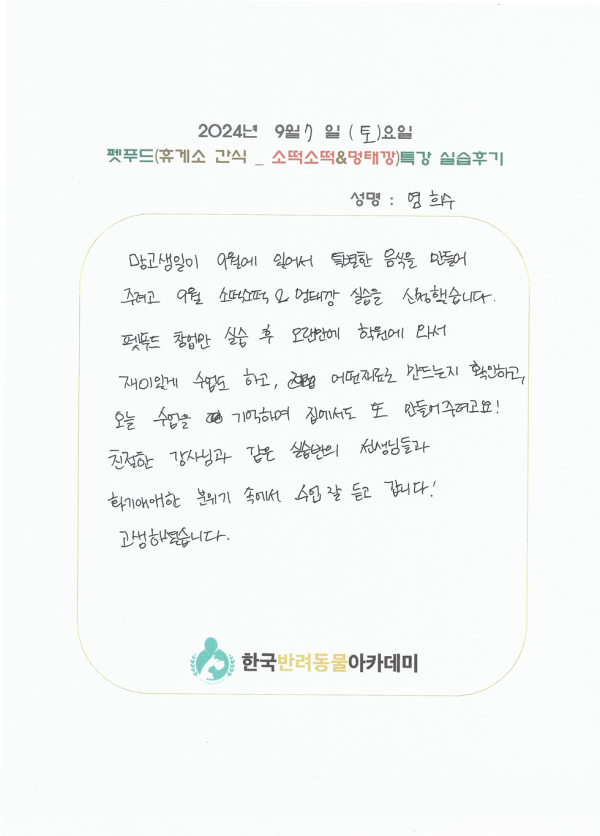 2024년 9월 7 일 (토)요일
펫푸드(휴게소 간식 _ 소떡소떡&멍태깡)특강 실습후기
성명 : 염희수
망고생일이 9월에 있어서 특별한 음식을 만들어
주려고 9월 소떡소떡 & 멍태깡 실습을 신청했습니다.
펫푸드 창업반 실습 후 오랜만에 학원에 와서
재미있게 수업도 하고, 어떤재료로 만드는지 확인하고,
오늘 수업을 기억하여 집에서도 또 만들어주려고요!
친절한 강사님과 같은 실습반의 선생님들과
화기애애한 분위기 속에서 수업 잘 듣고 갑니다!
고생하셨습니다.
한국반려동물아카데미